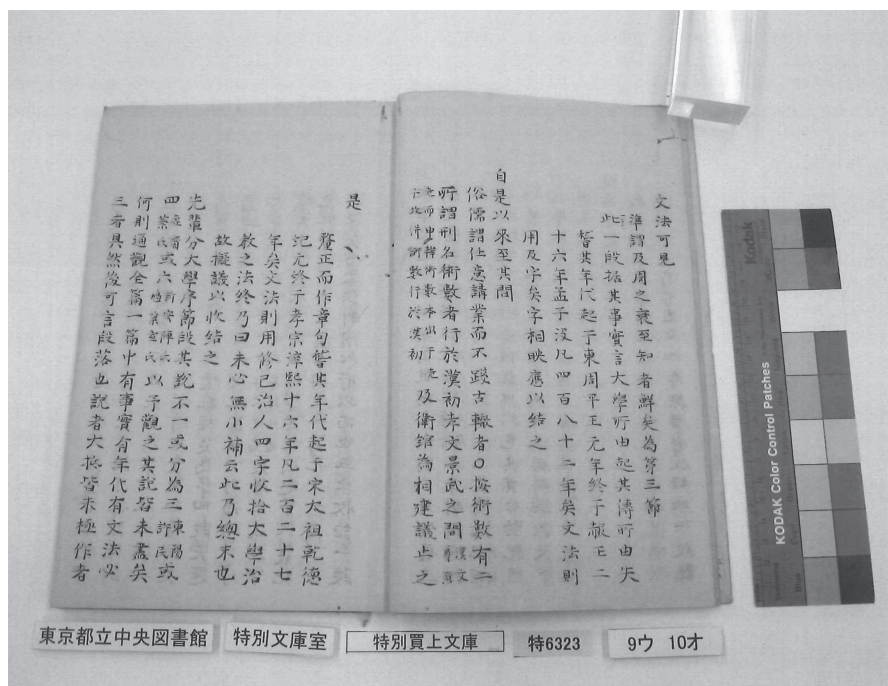 文法可見
準謂及周之衰至知者鮮矣為第三節
此一段括其事實言大學所由起其傳所由失
皆其年代起于東周平王元年終于赧王二
十六年孟子没凡四百八十二年矣文法則
用及字矣字相映應以結之
自是以來至其間
俗儒謂任意講業而不踐古轍者〇按術數有二
所謂刑名術數者行於漢初孝文景武之間
及衛綰為相建議止之
是
釐正而作章句皆其年代起于宋太祖乾德
紀元終于孝宗淳熙十六年凡二百二十七
年矣文法則用修己治人四字收拾大學治
教之法終乃曰未必無小補云此乃總末也
故擬議以收結之
先輩分大學序節段其說不一或分為三東陽許氏或
四或六新安陳氏以予觀之其說皆未盡矣
何則通觀全篇一篇中有事實有年代有文法必
三者具然後可言段落也說者大抵皆未極作者
Kodak
KODAK Color Control Patches
東京都立中央図書館
特別文庫室
特別買上文庫
特6323
9ウ 10オ